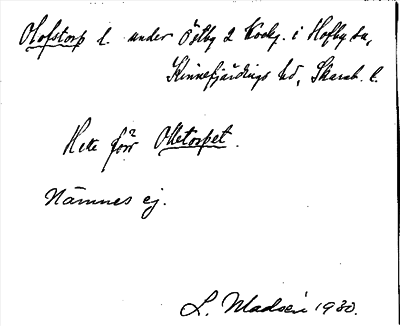 Olofstorp l. under Östby 2 Kockg. i Hofby sn,
Kinnefjärdings hd, Skarab. l.
Hette förr Olletorpet.
Nämnes ej.
L. Madsén 1930.